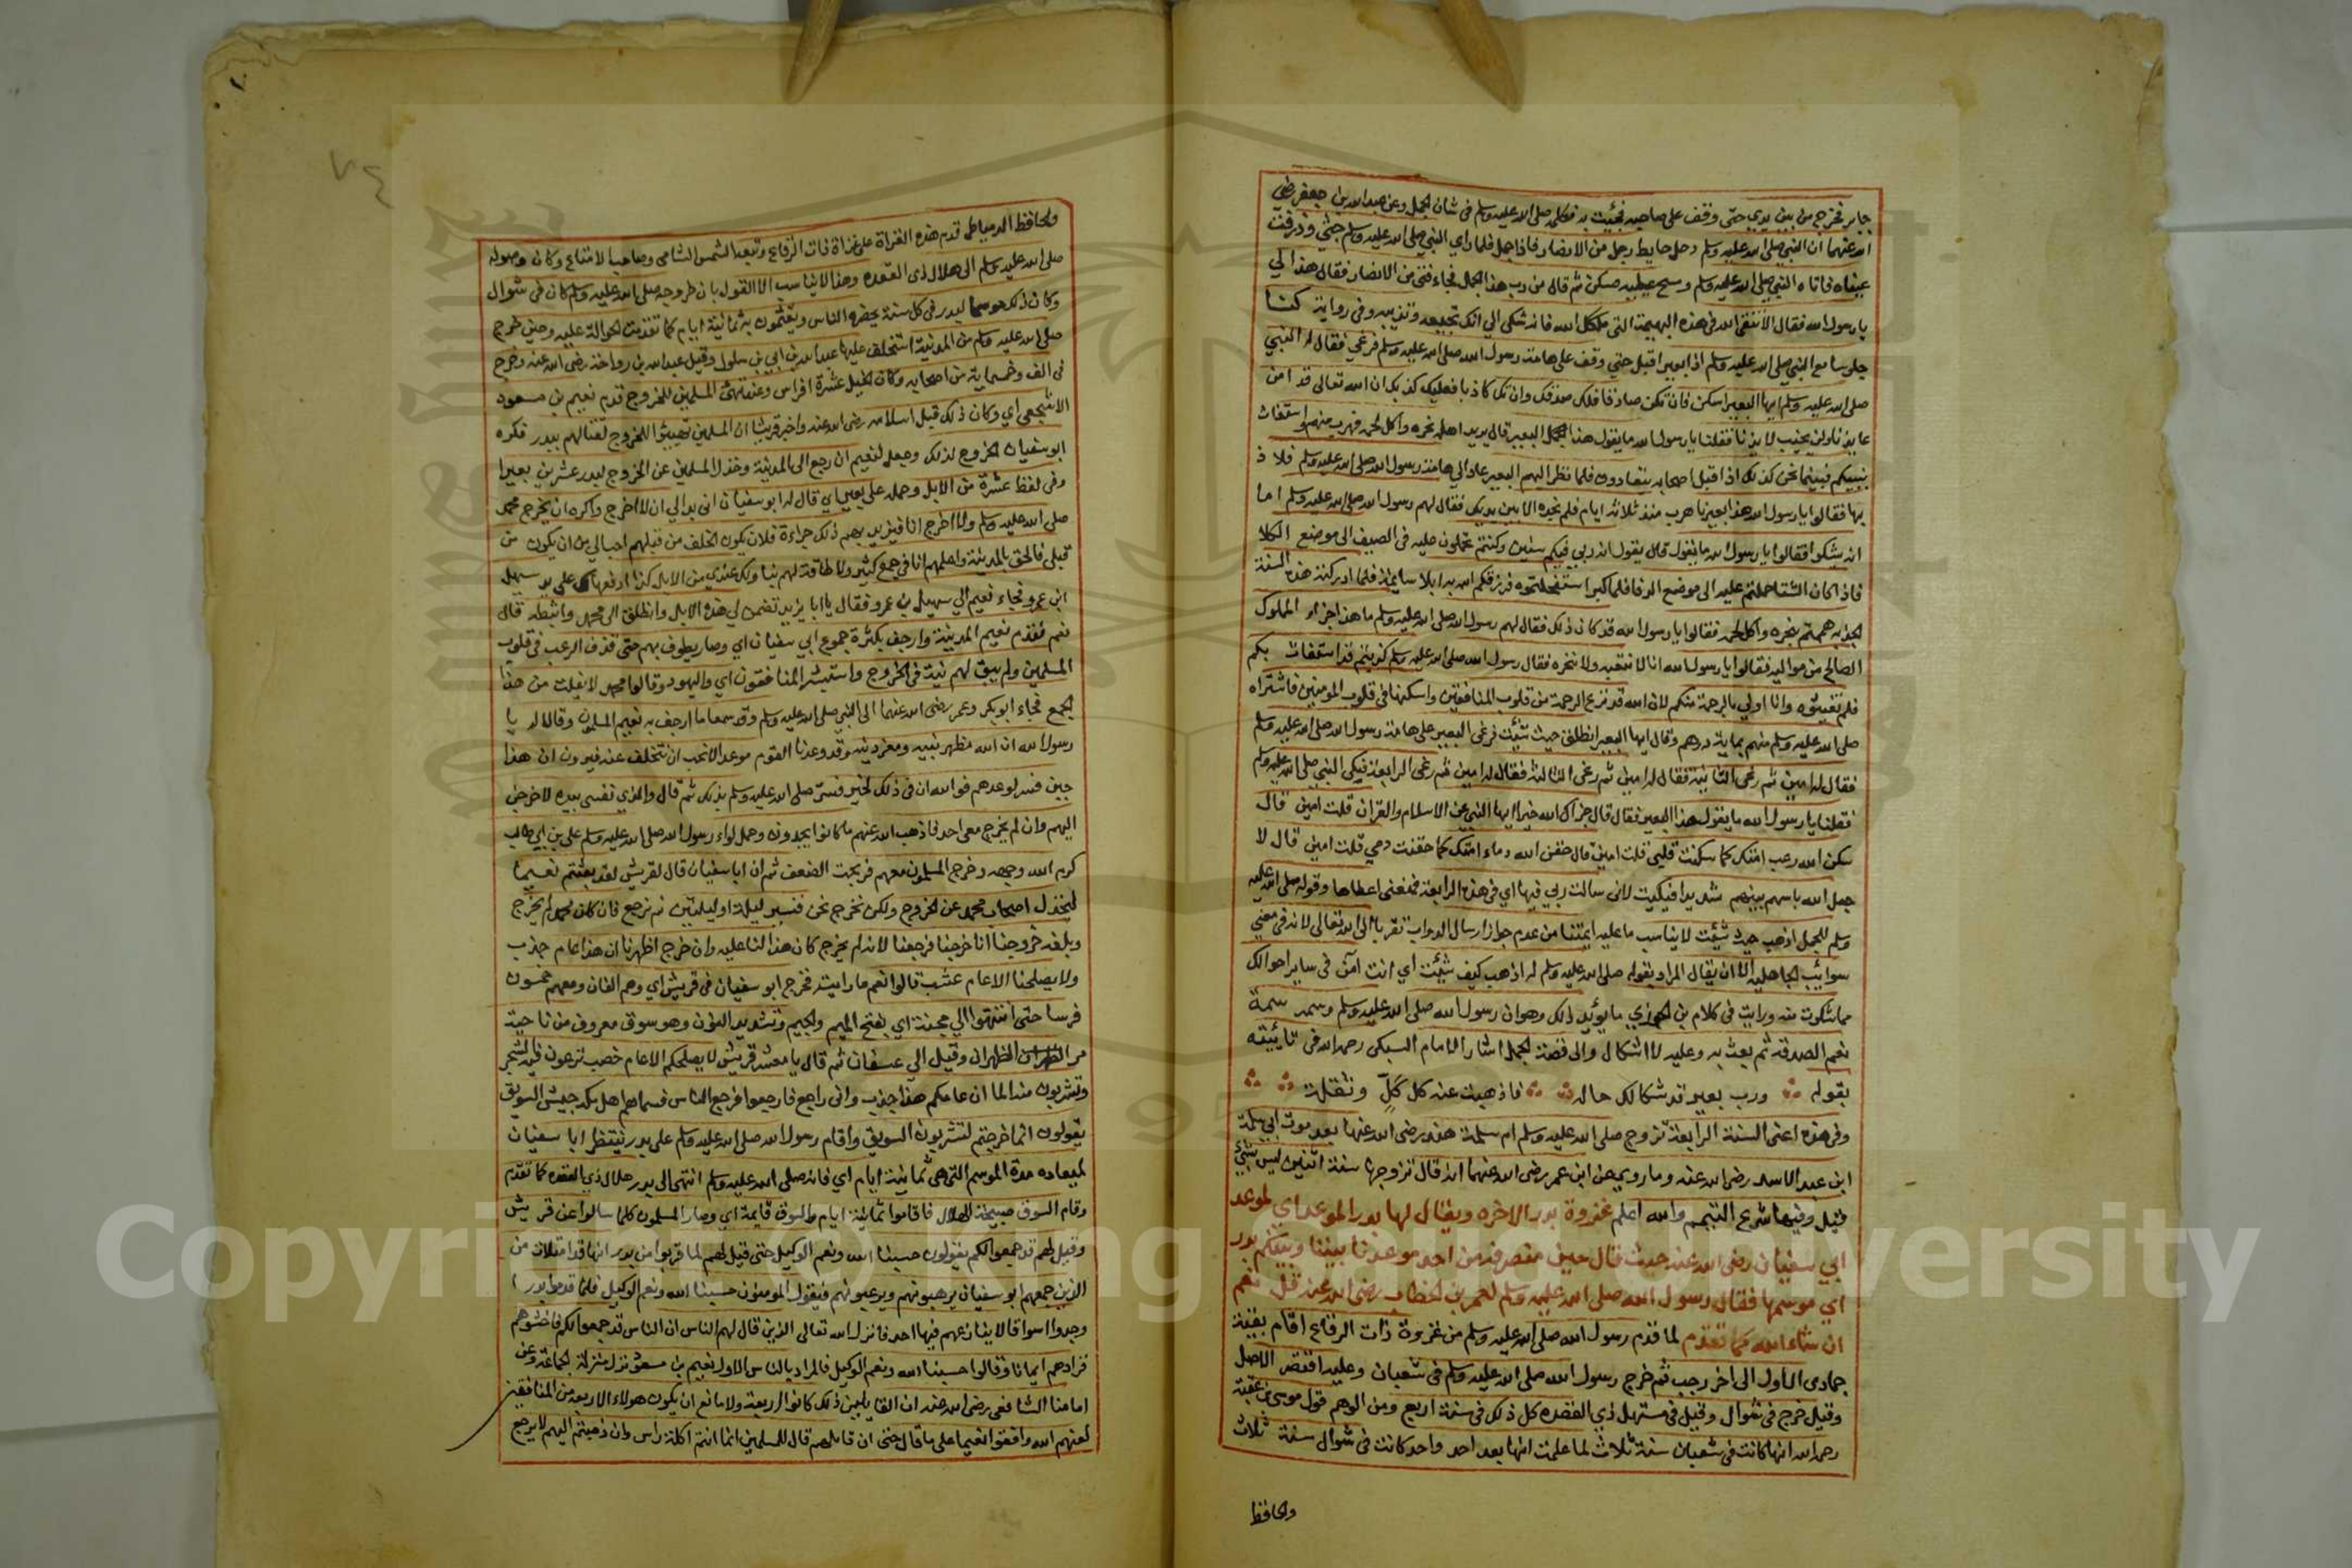 جابر فخرج من بين يدي حتى وقف على صاحبه فجئت به فكلمه صلى الله عليه وسلم في شان الجمل وعن عبدالله بن جعفر رضي
الله عنهما ان النبي صلى الله عليه وسلم دخل حايط رجل من الانصار فاذا جمل فلما راي النبي صلى الله عليه وسلم حن وذرفت
عيناه فاتاه النبي صلى الله عليه وسلم ومسح عليه فسكن ثم قال من رب هذا الجمل فجاء فتى من الانصار فقال هذا لي
يا رسول الله فقال الا تتقي الله في هذه البهيمة التي ملكك الله فانه شكى الي انك تجيعه وتذيبه وفي رواية كنا
جلوسا مع النبي صلى الله عليه وسلم اذا بعير اقبل حتى وقف على هامة رسول الله صلى الله عليه وسلم فرغى فقال له النبي
صلى الله عليه وسلم ايها البعير اسكن فان تكن صادقا فلك صدقك وان تك كاذبا فعليك كذبك ان الله تعالى قد امن
عايذنا ولن يخيب لايذنا فقلنا يا رسول الله ما يقول هذا البعير قال يريد اهله نحره واكل لحمه فهرب منهم واستغاث
بنبيكم فبينما نحن كذلك اذا قبل اصحابه يتعادون فلما نظر اليهم البعير عاد الي هامة رسول الله صلى الله عليه وسلم فلاذ
بها فقالوا يا رسول الله هذا بعيرنا هرب منذ ثلاثه ايام فلم نجده الا بين يديك فقال لهم رسول الله صلى الله عليه وسلم اما
انه يشكو فقالوا يا رسول الله ما يقول قال يقول انه ربي فيكم سنين وكنتم تحملون عليه في الصيف الى موضع الكلا
فاذا كان الشتا حملتم عليه الى موضع الدفا فلما كبر استفحلتموه فرزقكم الله به ابلا سايمة فلما ادركته هذه السنة
الجذبه هممتم بنحره واكل لحمه فقالوا يا رسول الله قد كان ذلك فقال لهم رسول الله صلى الله عليه وسلم ما هذا جزاء المملوك
الصالح من مواليه فقالوا يا رسول الله انا لا نبيعه ولا ننحره فقال رسول الله صلى الله عليه وسلم كذبتم قد استغاث بكم
فلم تغيثوه وانا اولى بالرحمة منكم لان الله قد نزع الرحمة من قلوب المنافقين واسكنها في قلوب المومنين فاشتراه
صلى الله عليه وسلم منهم بماية درهم وقال ايها البعير انطلق حيث شئت فرغى البعير على هامة رسول الله صلى الله عليه وسلم
فقال له امين ثم رغى الثانية فقال له امين ثم رغى الثالثة فقال له امين ثم رغى الرابعة فبكى النبي صلى الله عليه وسلم
فقلنا يا رسول الله ما يقول هذا البعير فقال قال جزاك الله خيرا ايها النبي عن الاسلام والقران قلت امين قال
سكن الله رعب امتك كما سكنت قلبي قلت امين قال حقن الله دماء امتك كما حقنت دمي قلت امين قال لا
جعل الله باسهم بينهم شديدا فبكيت لاني سالت ربي فيها اي في هذه الرابعة فمنعني اعطاها وقوله صلى الله عليه
وسلم للجمل اذهب حيث شئت لا يناسب ما عليه ايمتنا من عدم جواز ارسال الدواب تقربا الى الله تعالى لانه في معنى
سوائب الجاهليه الا ان يقال المراد بقوله صلى الله عليه وسلم له اذهب كيف شئت اي انت آمن في ساير احوالك
مما شكوت منه ورايت في كلام بن الجوزي ما يؤيد ذلك وهو ان رسول الله صلى الله عليه وسلم وسمه سمة
نعم الصدقه ثم بعث به وعليه لا اشكال والى قصة الجمل اشار الامام السبكي رحمه الله في تائيته
بقوله ورب بعير قد شكا لك حاله فاذهبت عنه كل كَلٍّ وثقلة
وفي هذه اعني السنة الرابعة تزوج صلى الله عليه وسلم ام سلمة هند رضي الله عنها بعد موت ابي سلمة
ابن عبد الاسد رضي الله عنه وما روي عن ابن عمر رضي الله عنهما انه قال تزوجها سنة اثنين ليس بشئ
قيل وفيها شرع التيمم والله اعلم غزوة بدر الاخره ويقال لها بدر الموعد اي لموعد
ابي سفيان رضي الله عنه حيث قال حين منصرفه من احد موعد نا بيننا وبينكم بدر
اي موسمها فقال رسول الله صلى الله عليه وسلم لعمر بن الخطاب رضي الله عنه قل نعم
ان شاء الله كما تقدم لما قدم رسول الله صلى الله عليه وسلم من غزوة ذات الرقاع اقام بقية
جمادى الاول الى اخر رجب ثم خرج رسول الله صلى الله عليه وسلم في شعبان وعليه اقتصر الاصل
وقيل خرج في شوال وقيل في مستهل ذي القعده كل ذلك في سنة اربع ومن الوهم قول موسى بن عقبة
رحمه الله انها كانت في شعبان سنة ثلاث لما علمت انها بعد احد واحد كانت في شوال سنة ثلاث
والحافظ
٧٤
والحافظ الدمياطى قدم هذه الغزاة على غزاة ذات الرقاع وتبعه الشمس الشامي وصاحب الامتاع وكان وصوله
صلى الله عليه وسلم الى هلال ذي القعده وهذا لا يناسب الا القول بان خروجه صلى الله عليه وسلم كان في شوال
وكان ذلك موسما لبدر في كل سنة يحضره الناس ويقيمون به ثمانية ايام كما تقدمت الحوالة عليه وحين خرج
صلى الله عليه وسلم من المدينة استخلف عليها عبد الله بن ابي بن سلول وقيل عبد الله بن رواحة رضي الله عنه وخرج
في الف وخمسماية من اصحابه وكان الخيل عشرة افراس وعند تهئ المسلمين للخروج قدم نعيم بن مسعود
الاشجعي اي وكان ذلك قبل اسلامه رضي الله عنه واخبر قريشا ان المسلمين تهيئوا للخروج لقتالهم ببدر فكره
ابو سفيان الخروج لذلك وجعل لنعيم ان رجع الى المدينة وخذل المسلمين عن الخروج لبدر عشرين بعيرا
وفي لفظ عشرة من الابل وحمله على بعير اي قال له ابو سفيان انى بدا لي ان لا اخرج واكره ان يخرج محمد
صلى الله عليه وسلم ولا اخرج انا فيزيدهم ذلك جراءة فلان يكون الخلف من قبلهم احب الي من ان يكون من
قبلي فالحق بالمدينة واعلمهم انا في جمع كثير ولا طاقة لهم بنا ولك عندي من الابل كذا ادفعها لك على يد سهيل
ابن عمرو فجاء نعيم الي سهيل بن عمرو فقال يا ابا يزيد تضمن لي هذه الابل وانطلق الى محمد واثبطه قال
نعم فقدم نعيم المدينة وارجف بكثرة جموع ابي سفيان اي وصار يطوف بهم حتى قذف الرعب في قلوب
المسلمين ولم يبق لهم نية في الخروج واستبشر المنافقون اي واليهود وقالوا محمد لا يفلت من هذا
الجمع فجاء ابو بكر وعمر رضي الله عنهما الى النبي صلى الله عليه وسلم وقد سمعا ما ارجف به نعيم المسلمون وقالا له يا
رسول الله ان الله مظهر نبيه ومعز دينه وقد وعدنا القوم موعدا لا نحب ان نتخلف عنه فيرون ان هذا
جبن فسر لوعدهم فوالله ان في ذلك لخير فسرّ صلى الله عليه وسلم بذلك ثم قال والذي نفسي بيده لاخرجن
اليهم وان لم يخرج معى احد فاذهب الله عنهم ما كانوا يجدونه وحمل لواء رسول الله صلى الله عليه وسلم علي بن ابي طالب
كرم الله وجهه وخرج المسلمون معهم ثم ان ابا سفيان قال لقريش لقد بعثتم نعيما
ليخذل اصحاب محمد عن الخروج ولكن نخرج نحن فنسير ليلة او ليلتين ثم نرجع فان كان محمد لم يخرج
وبلغه خروجنا انا خرجنا فرجعنا لانه لم يخرج كان هذا لنا عليه وان خرج اظهرنا ان هذا عام جذب
ولا يصلحنا الا عام عشب قالوا نعم ما رايت فخرج ابو سفيان في قريش اي وهم الفان ومعهم خمسون
فرسا حتى انتهوا الى مجنة اي بفتح الميم والجيم وتشديد النون وهو سوق معروف من ناحية
مر الظهران وقيل الى عسفان ثم قال يا معشر قريش لا يصلحكم الا عام خصب ترعون فيه الشجر
وتشربون منه الما ان عامكم هذا جذب واني راجع فارجعوا فرجع الناس فسماهم اهل مكة جيش السويق
يقولون انما خرجتم لتشربون السويق واقام رسول الله صلى الله عليه وسلم على بدر ينتظر ابا سفيان
لميعاده مدة الموسم التي هي ثمانية ايام اي فانه صلى الله عليه وسلم انتهى الى بدر هلال ذي القعده كما تقدم
وقام السوق صبيحة الهلال فاقاموا ثمانية ايام والسوق قايمة اي وصار المسلمون كلما سالوا عن قريش
وقيل لهم قد جمعوا لكم يقولون حسبنا الله ونعم الوكيل حتى قيل لهم لما قربوا من بدر انها قد امتلات من
الذين جمعهم ابو سفيان يرهبونهم ويرعبونهم فيقول المومنون حسبنا الله ونعم الوكيل فلما قدموا بدرا
وجدوا اسواقا لا ينازعهم فيها احد فانزل الله تعالى الذين قال لهم الناس ان الناس قد جمعوا لكم فاخشوهم
فزادهم ايمانا وقالوا حسبنا الله ونعم الوكيل فالمراد بالناس الاول نعيم بن مسعود نزل منزلة الجماعة وعن
امامنا الشافعي رضي الله عنه ان القايلين ذلك كانوا اربعة ولا مانع ان يكون هولاء الاربعة من المنافقين
لعنهم الله وافقوا نعيما على ما قال حتى ان قايلهم قال للمسلمين انما انتم اكلة راس وان ذهبتم اليهم لا يرجع
Copyright © King Saud University